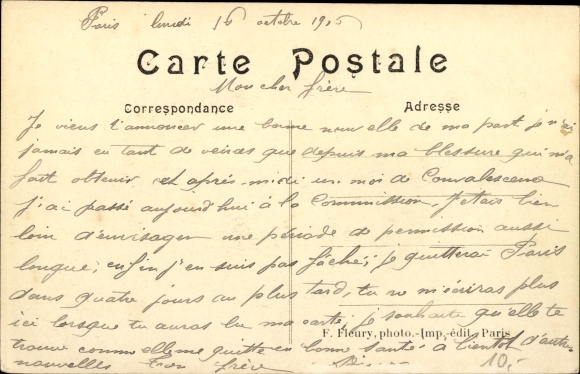 Paris lundi 16 octobre 1915
Carte Postale
Mon cher frère
Correspondance
Adresse
Je viens t'annoncer une bonne nouvelle de ma part, je n'ai
jamais eu tant de veines que depuis ma blessure qui m'a
fait obtenir cet après-midi un moi de Convalescence
j'ai passé aujourd'hui à la Commission, j'etais bien
loin d'envisager une période de permission aussi
longue; enfin j'en suis pas fâché; je quitterai Paris
dans quatre jours au plus tard, tu ne m'écriras plus
ici lorsque tu auras lu ma carte; je souhaite qu'elle te
F. Fleury, photo.-Imp.-édit. Paris
trouve comme elle me quitte en bonne santé. à bientôt d'autres
nouvelles Ton frère
10,-